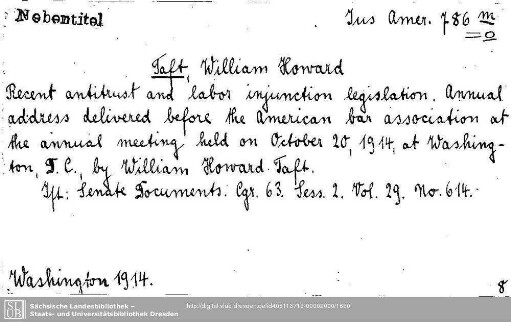 Nebentitel
Jus Amer. 786 m
= o
Taft, William Howard
Recent antitrust and labor injunction legislation. Annual
address delivered before the American bar association at
the annual meeting held on October 20, 1914, at Washing-
ton, D. C., by William Howard Taft.
Ist: Senate Documents. Cgr. 63. Sess. 2. Vol. 29. No. 614.
Washington 1914.
8
Sächsische Landesbibliothek –
Staats- und Universitätsbibliothek Dresden